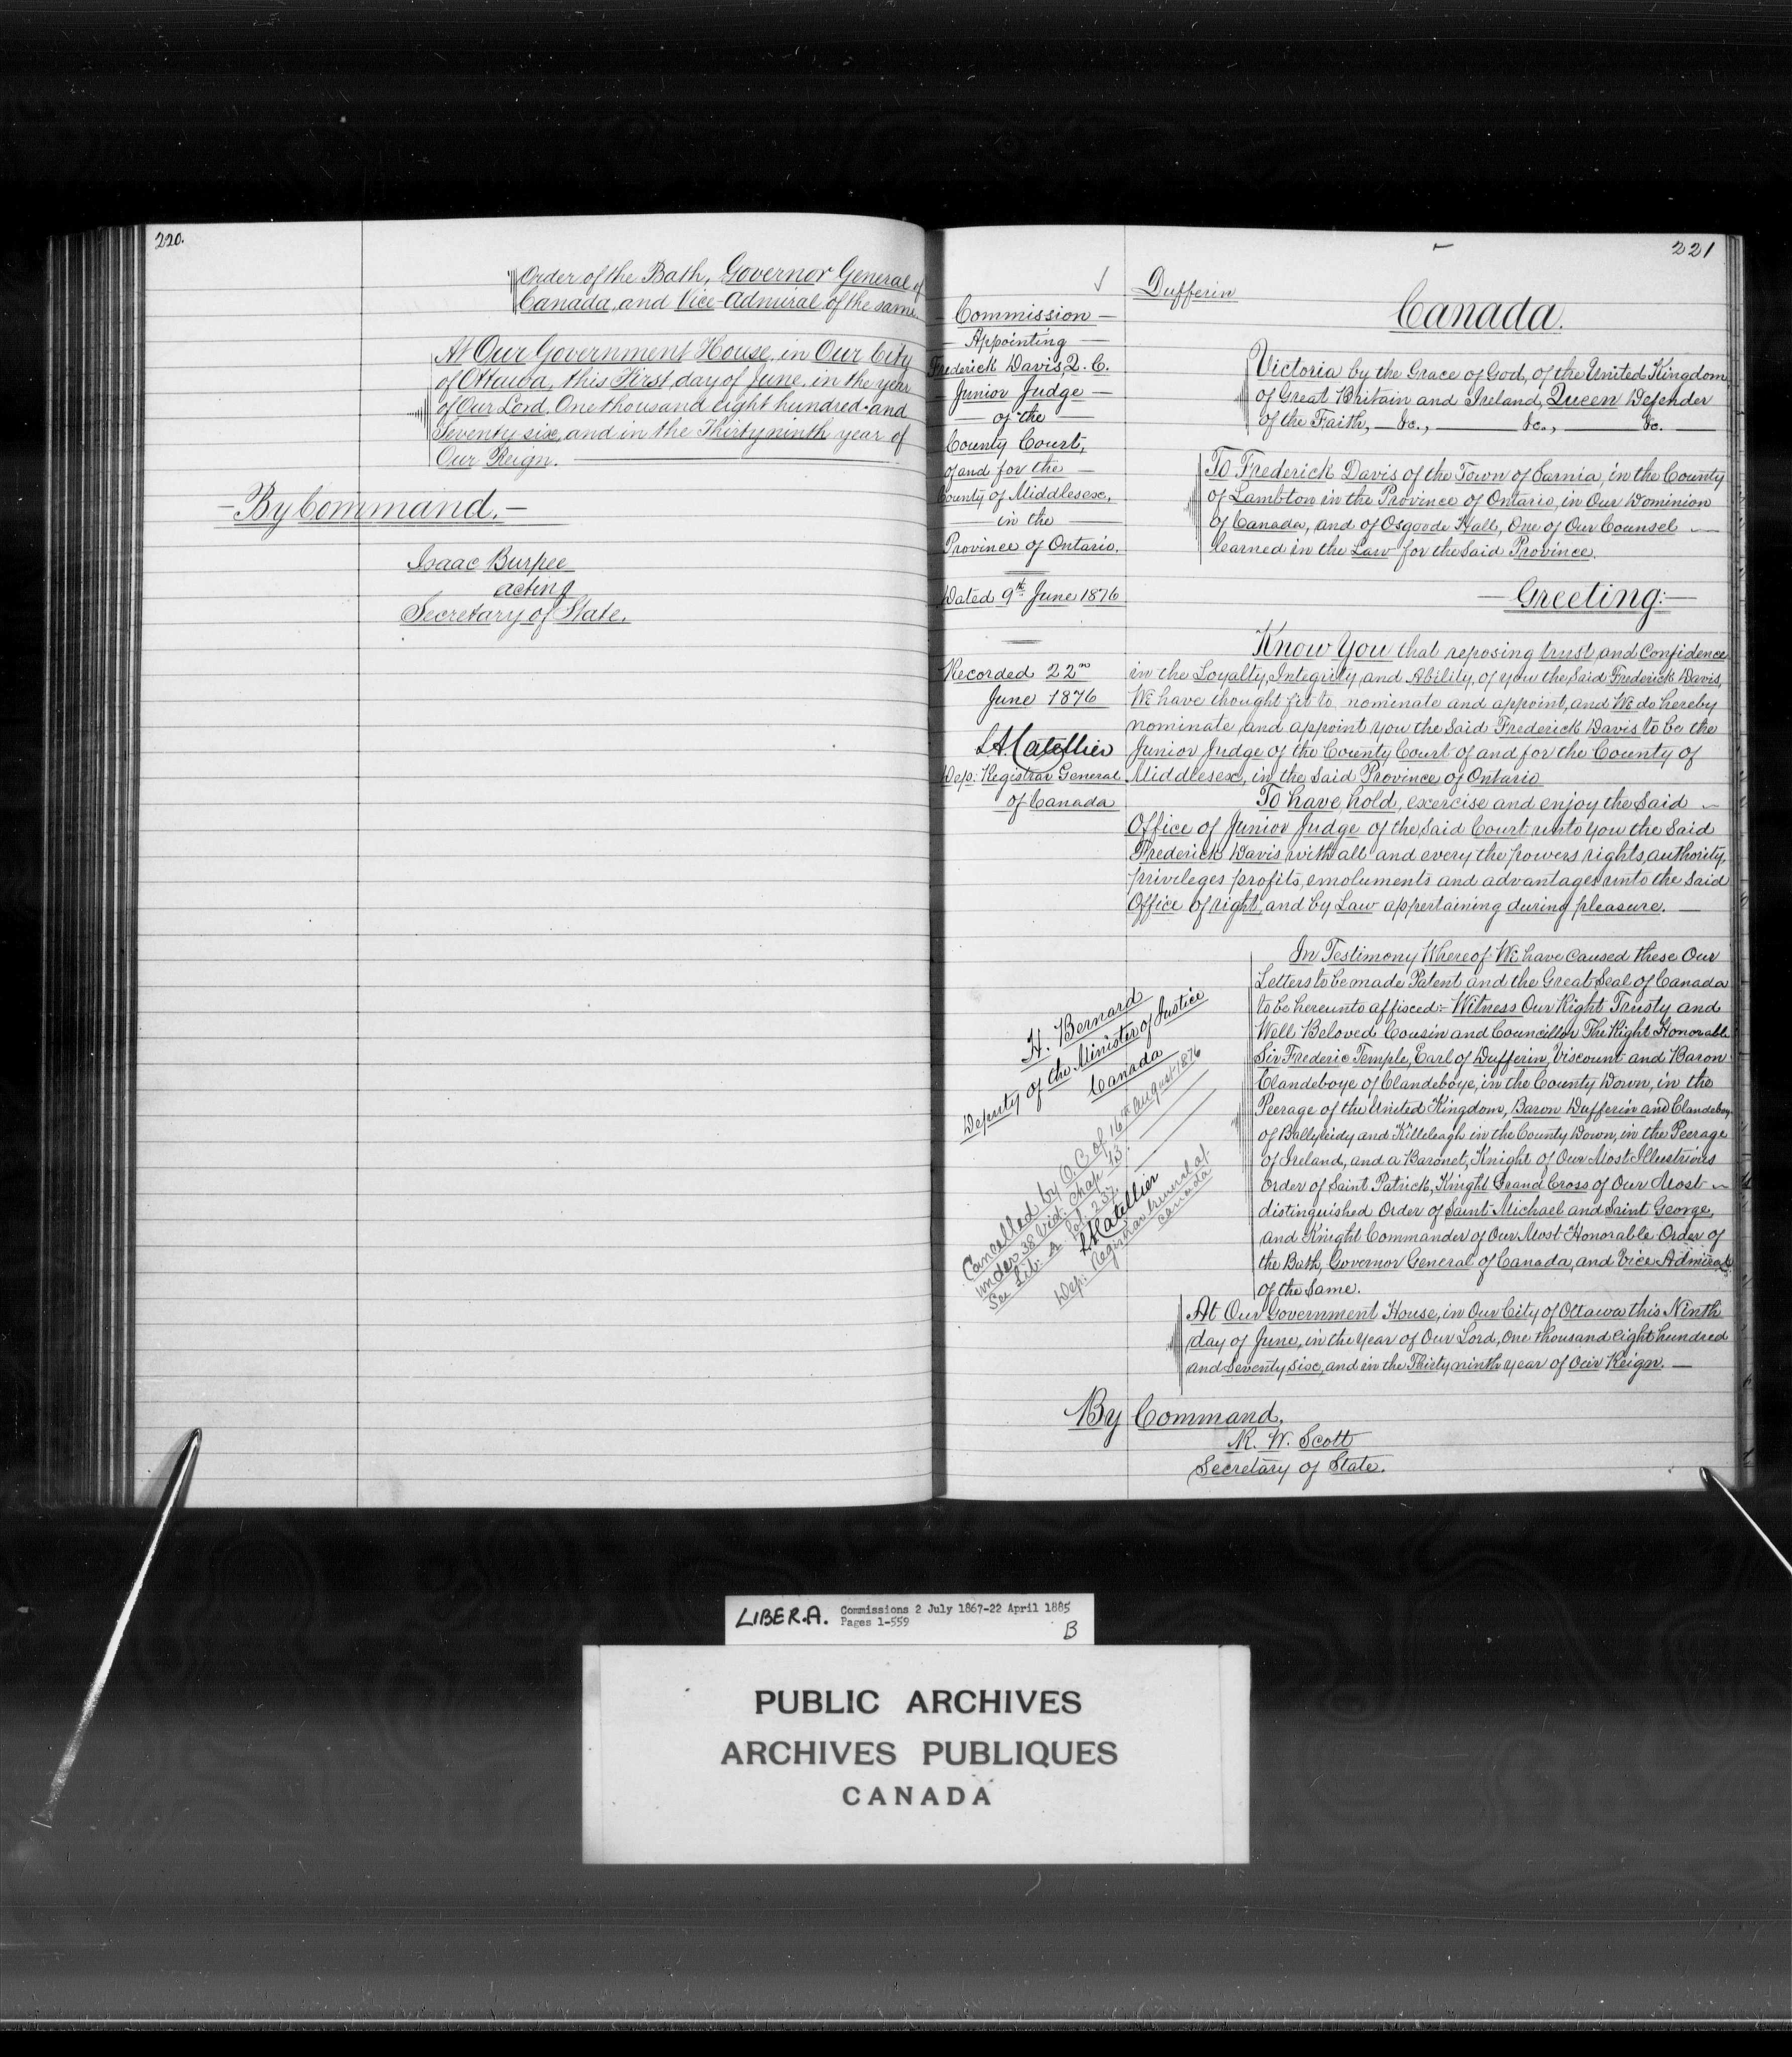 220.
Order of the Bath, Governor General of
Canada, and Vice-Admiral of the same.
At Our Government House, in Our City
of Ottawa, this First day of June, in the year
of Our Lord, One thousand eight hundred and
Seventy six, and in the Thirty ninth year of
Our Reign.
By Command.
Isaac Burpee
acting
Secretary of State.
221
Dufferin
Canada.
Commission
Appointing
Frederick Davis, Q. C.
Junior Judge
of the
County Court,
of and for the
County of Middlesex,
in the
Province of Ontario.
Dated 9th June 1876
Recorded 22nd
June 1876
LA Catellier
Dep: Registrar General
of Canada
Victoria by the Grace of God, of the United Kingdom
of Great Britain and Ireland, Queen Defender
of the Faith, &c., &c., &c.
To Frederick Davis of the Town of Sarnia, in the County
of Lambton in the Province of Ontario, in Our Dominion
of Canada, and of Osgoode Hall, One of Our Counsel
learned in the Law for the Said Province.
Greeting:
Know You that reposing trust and Confidence
in the Loyalty, Integrity and Ability, of you the Said Frederick Davis,
We have thought fit to nominate and appoint, and We do hereby
nominate and appoint you the Said Frederick Davis to be the
Junior Judge of the County Court of and for the County of
Middlesex, in the Said Province of Ontario
To have, hold, exercise and enjoy the Said
Office of Junior Judge of the Said Court unto you the Said
Frederick Davis with all and every the powers rights, authority,
privileges profits, emoluments and advantages unto the Said
Office of right, and by Law appertaining during pleasure.
In Testimony Whereof We have caused these Our
Letters to be made Patent and the Great Seal of Canada
to be hereunto affixed:- Witness Our Right Trusty and
Well Beloved Cousin and Councillor The Right Honorable
Sir Frederic Temple, Earl of Dufferin, Viscount and Baron
Clandeboye of Clandeboye, in the County Down, in the
Peerage of the United Kingdom, Baron Dufferin and Clandeboye
of Ballyleidy and Killeleagh in the County Down, in the Peerage
of Ireland, and a Baronet, Knight of Our Most Illustrious
Order of Saint Patrick, Knight Grand Cross of Our Most
distinguished Order of Saint Michael and Saint George,
and Knight Commander of Our Most Honorable Order of
the Bath, Governor General of Canada, and Vice Admiral
of the Same.
At Our Government House, in Our City of Ottawa this Ninth
day of June, in the year of Our Lord, One thousand eight hundred
and Seventy six, and in the Thirty ninth year of Our Reign.
H. Bernard
Deputy of the Minister of Justice
Canada
Cancelled by O. C. of 16th August 1876
under 38 Vict: Chap 13.
See Lib: A fol: 237.
LA Catellier
Dep: Registrar General of
Canada
By Command,
R. W. Scott
Secretary of State.
LIBER.A. Commissions 2 July 1867-22 April 1885
Pages 1-559
B
PUBLIC ARCHIVES
ARCHIVES PUBLIQUES
CANADA